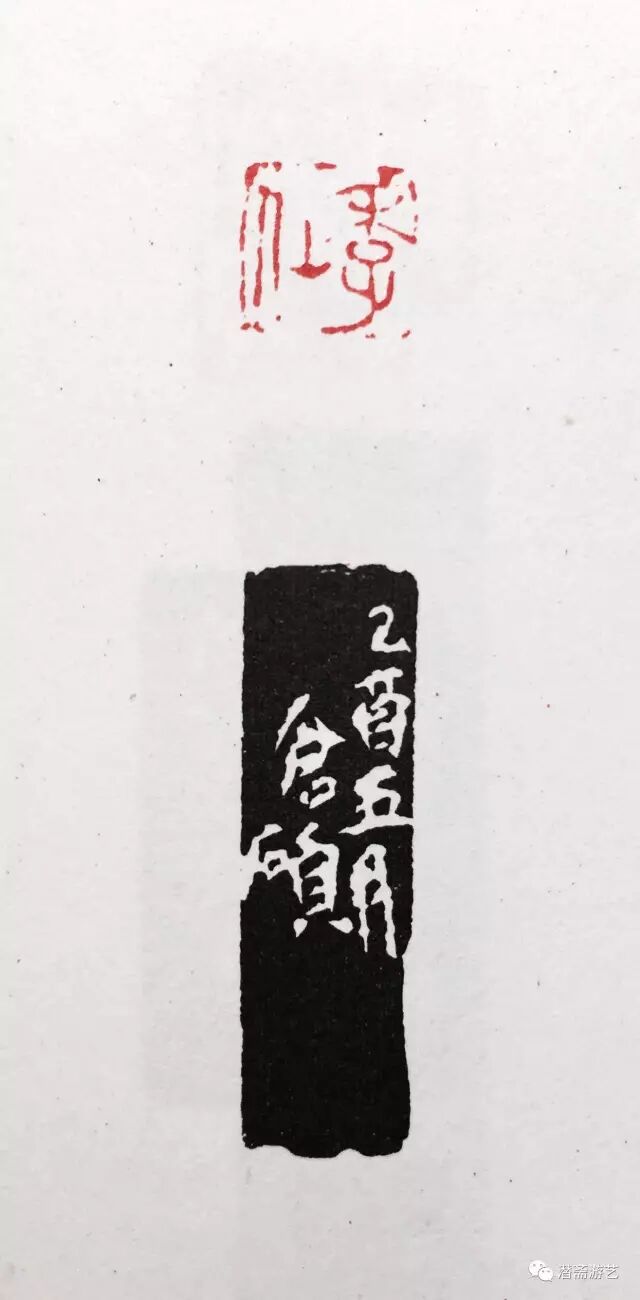 季
乙酉五月
倉碩
潜斋游艺